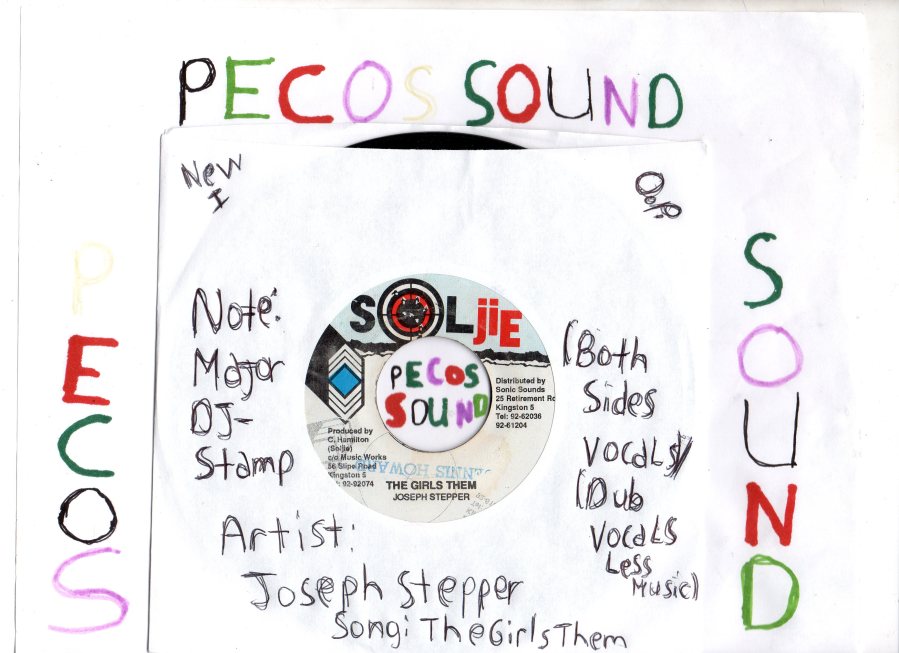 PECOS SOUND
New
I
O.P.
Note:
Major
DJ-
Stamp
(Both
Sides
Vocals)
(Dub
Vocals
Less
Music)
SOLjiE
PECOS
SOUND
Distributed by
Sonic Sounds
25 Retirement Rd
Kingston 5
Tel: 92-62036
92-61204
Produced by
C. Hamilton
(Soljie)
c/o Music Works
56 Slipe Road
Kingston 5
92-92074
THE GIRLS THEM
JOSEPH STEPPER
Artist:
Joseph Stepper
Song: The Girls Them
PECOS
SOUND